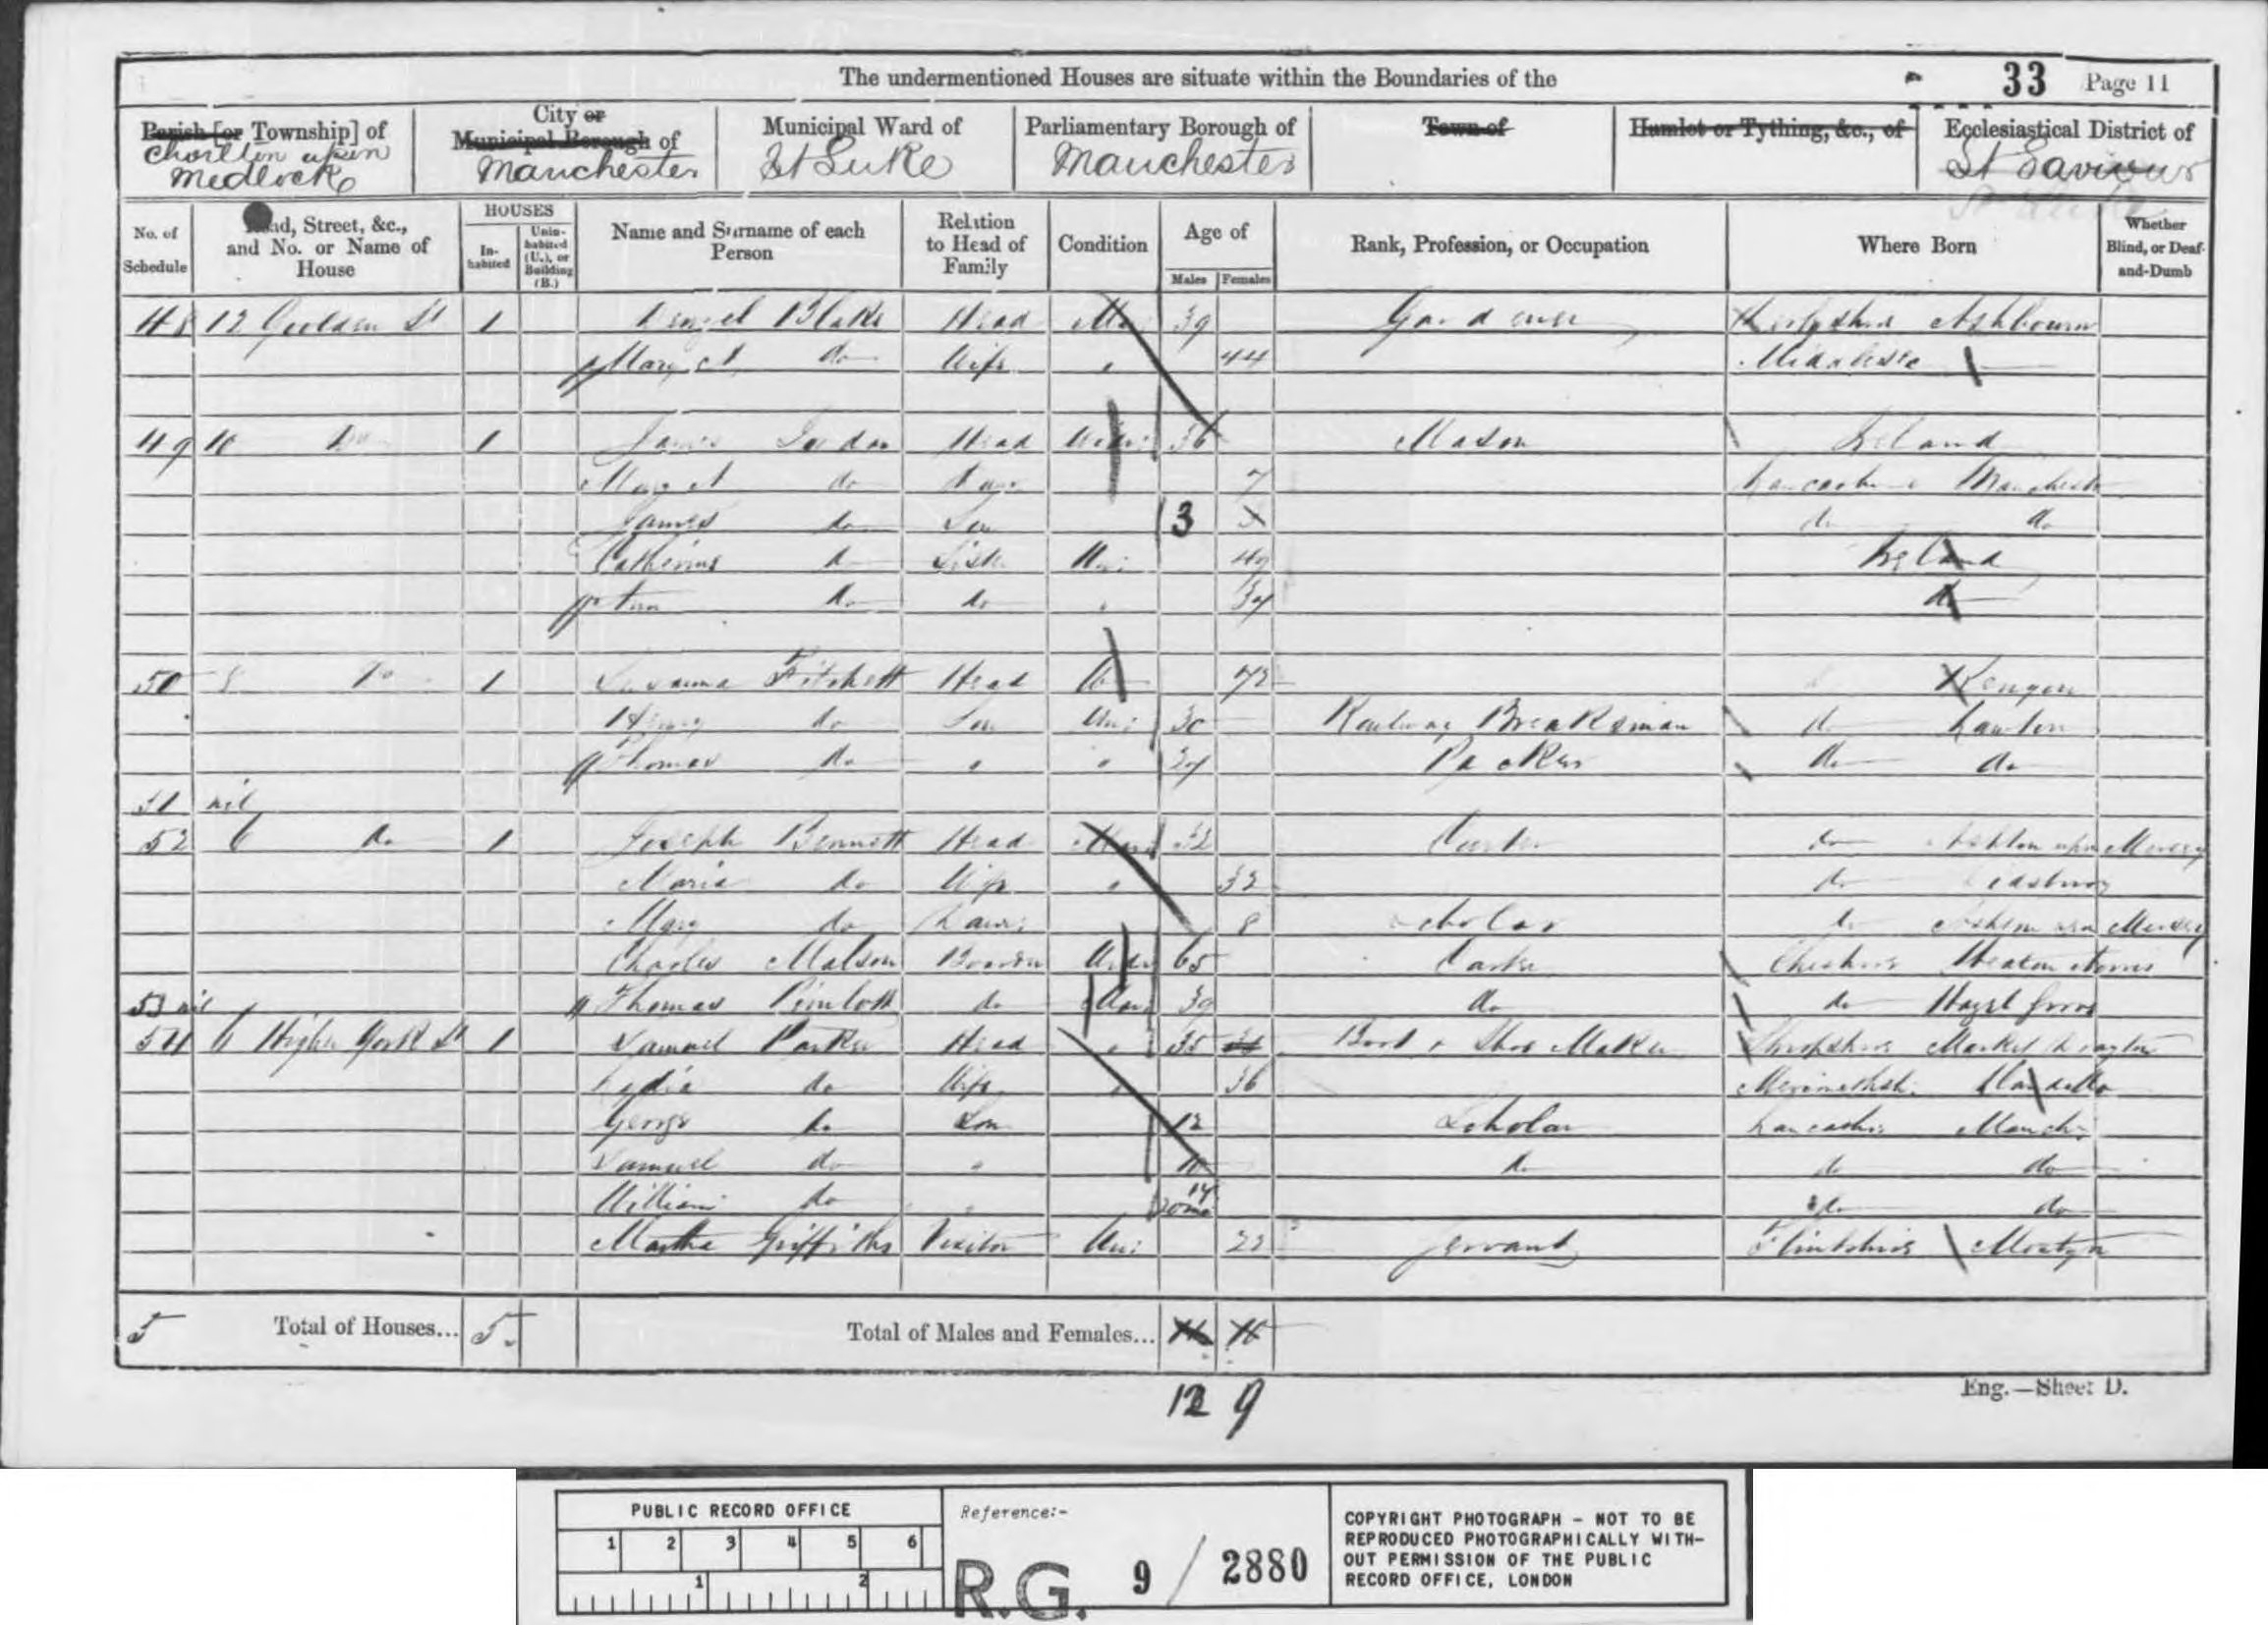 The undermentioned Houses are situate within the Boundaries of the 33 Page 11
Parish [or Township] of City or Municipal Borough of Municipal Ward of Parliamentary Borough of Town of Hamlet or Tything, &c., of Ecclesiastical District of
Chorlton upon Medlock Manchester St Luke Manchester St Saviour
No. of Schedule Road, Street, &c., and No. or Name of House HOUSES Inhabited Uninhabited (U.), or Building (B.) Name and Surname of each Person Relation to Head of Family Condition Age of Males Females Rank, Profession, or Occupation Where Born Whether Blind, or Deaf-and-Dumb
48 12 St 1 Blake Head Mar 39 Gardener Derbyshire Ashbourn
Mary A do Wife " 44
49 10 Do 1 James Head 36 Mason Ireland
do 7 Lancashire Manchester
James do Son 3 do do
Catherine do Sister Un: Ireland
Ann do do " do
50 8 Do 1 Susanna Fitchett Head W 72 Kenyon
Henry do Son Un: 30 Railway Breaksman do
Thomas do " " Packer do do
51 nil
52 6 do 1 Joseph Bennett Head Mar 32 Carter do Ashton upon Mersey
Maria do Wife " 32 do Didsbury
Mary do 8 Scholar do Mersey
Charles Boarder 65 Carter Cheshire Heaton Norris
53 nil Thomas Pimlott do Mar 39 do do Hazel Grove
54 6 Higher York St 1 Samuel Parker Head " 35 Boot & Shoe Maker Shropshire Market Drayton
Lydia do Wife " 36
George do Son 12 Scholar Lancashire Manch:
Samuel do " 10 do do do
William do " do do
Martha Griffiths Visitor Un: 22 Servant Flintshire Mostyn
5 Total of Houses... 5 Total of Males and Females...
12 9
Eng.—Sheet D.
PUBLIC RECORD OFFICE
1 2 3 4 5 6
1 2
Reference:-
R.G. 9 / 2880
COPYRIGHT PHOTOGRAPH - NOT TO BE
REPRODUCED PHOTOGRAPHICALLY WITH-
OUT PERMISSION OF THE PUBLIC
RECORD OFFICE, LONDON